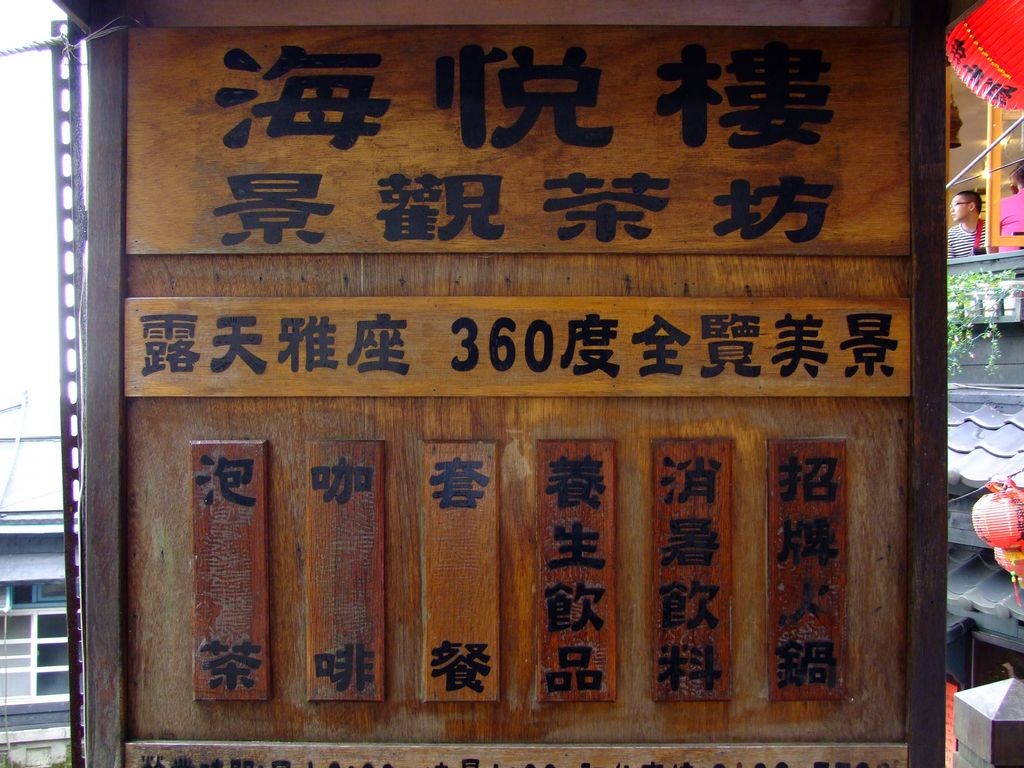 海悅樓
景觀茶坊
露天雅座 360度全覽美景
招牌火鍋
消暑飲料
養生飲品
套餐
咖啡
泡茶